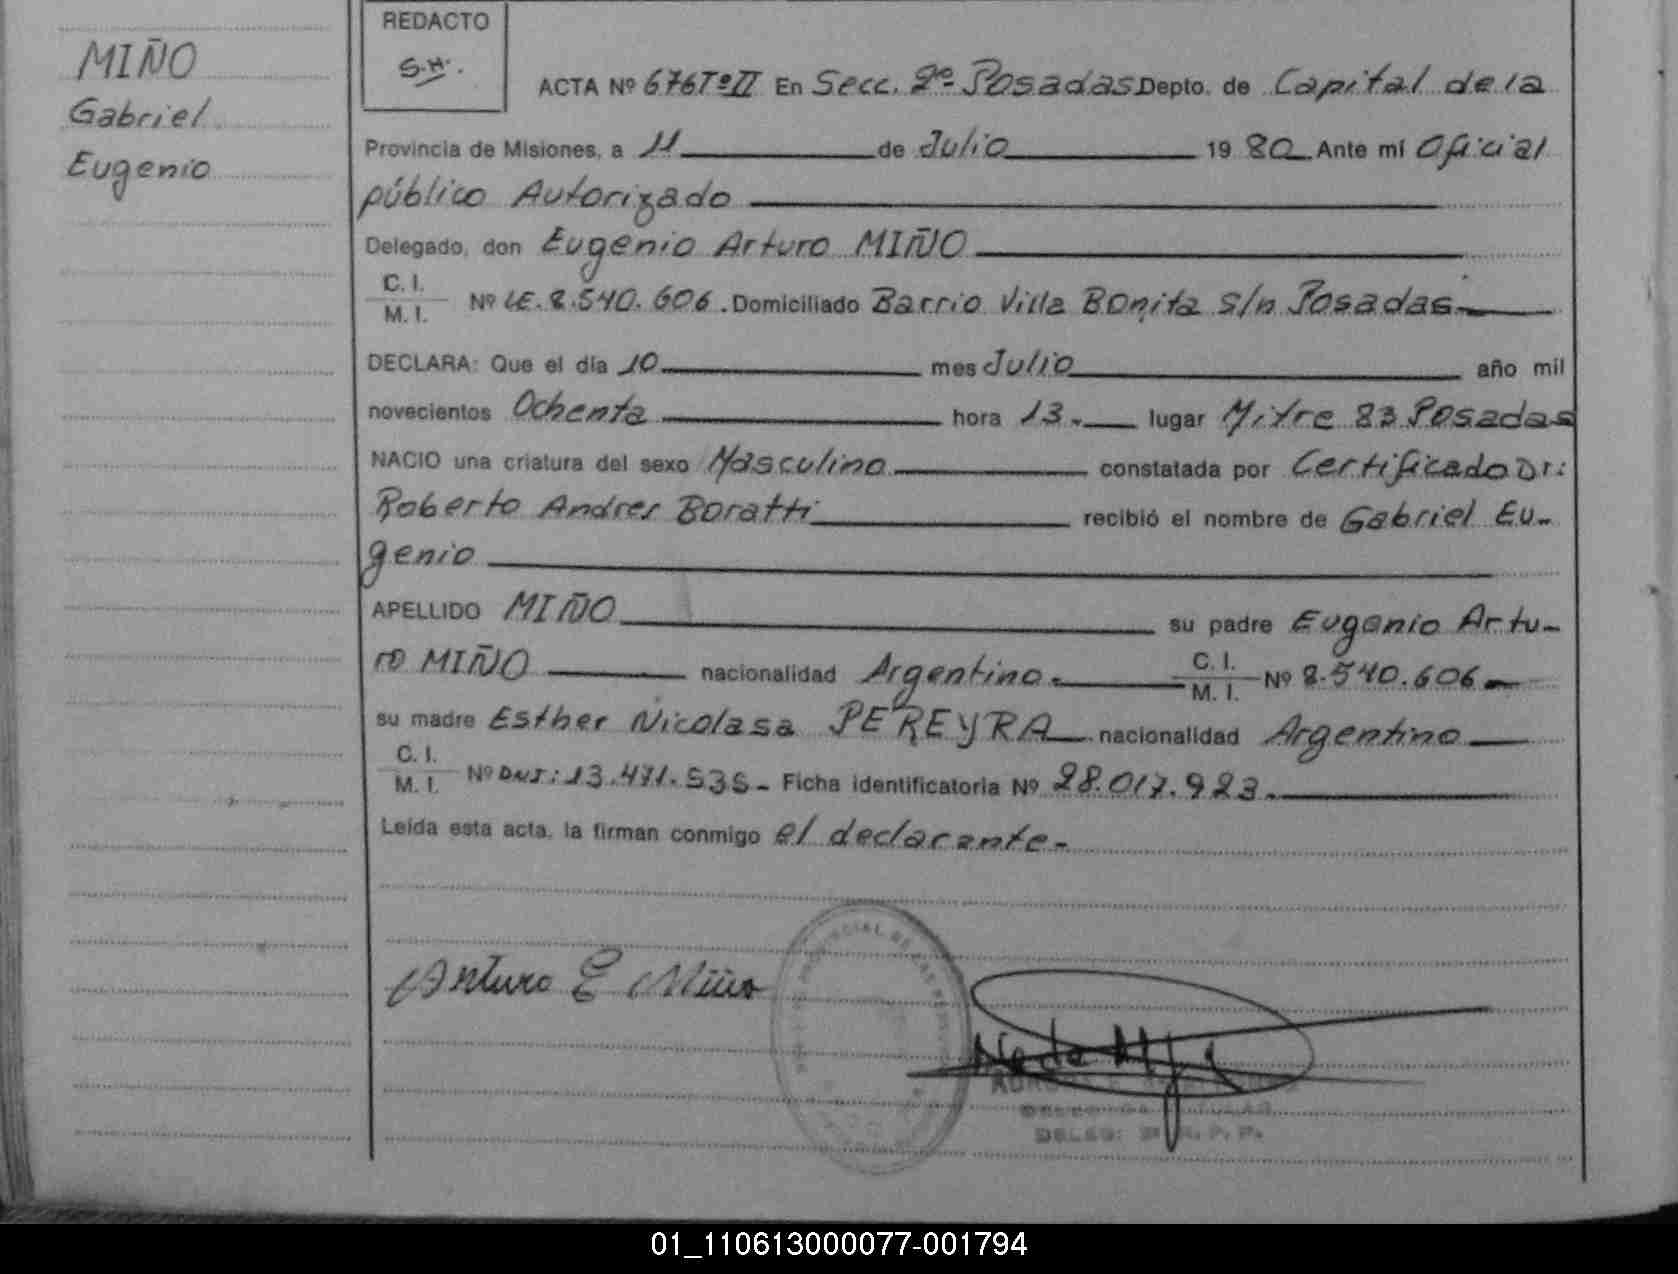 MIÑO
Gabriel
Eugenio
REDACTO
S.H.
ACTA Nº 676Tº II En Secc. 2º Posadas Depto. de Capital de la
Provincia de Misiones, a 11 de Julio 1980 Ante mí Oficial
público Autorizado
Delegado, don Eugenio Arturo MIÑO
C. I.
M. I. Nº LE. 8.540.606. Domiciliado Barrio Villa Bonita s/n Posadas
DECLARA: Que el día 10 mes Julio año mil
novecientos Ochenta hora 13.- lugar Mitre 83 Posadas
NACIO una criatura del sexo Masculino constatada por Certificado Dr:
Roberto Andres Boratti recibió el nombre de Gabriel Eu-
genio
APELLIDO MIÑO su padre Eugenio Artu-
ro MIÑO nacionalidad Argentino. C. I. M. I. Nº 8.540.606
su madre Esther Nicolasa PEREYRA nacionalidad Argentino
C. I.
M. I. Nº DNI: 13.471.535- Ficha identificatoria Nº 28.017.923.
Leída esta acta, la firman conmigo el declarante.-
Arturo E Miño
01_110613000077-001794